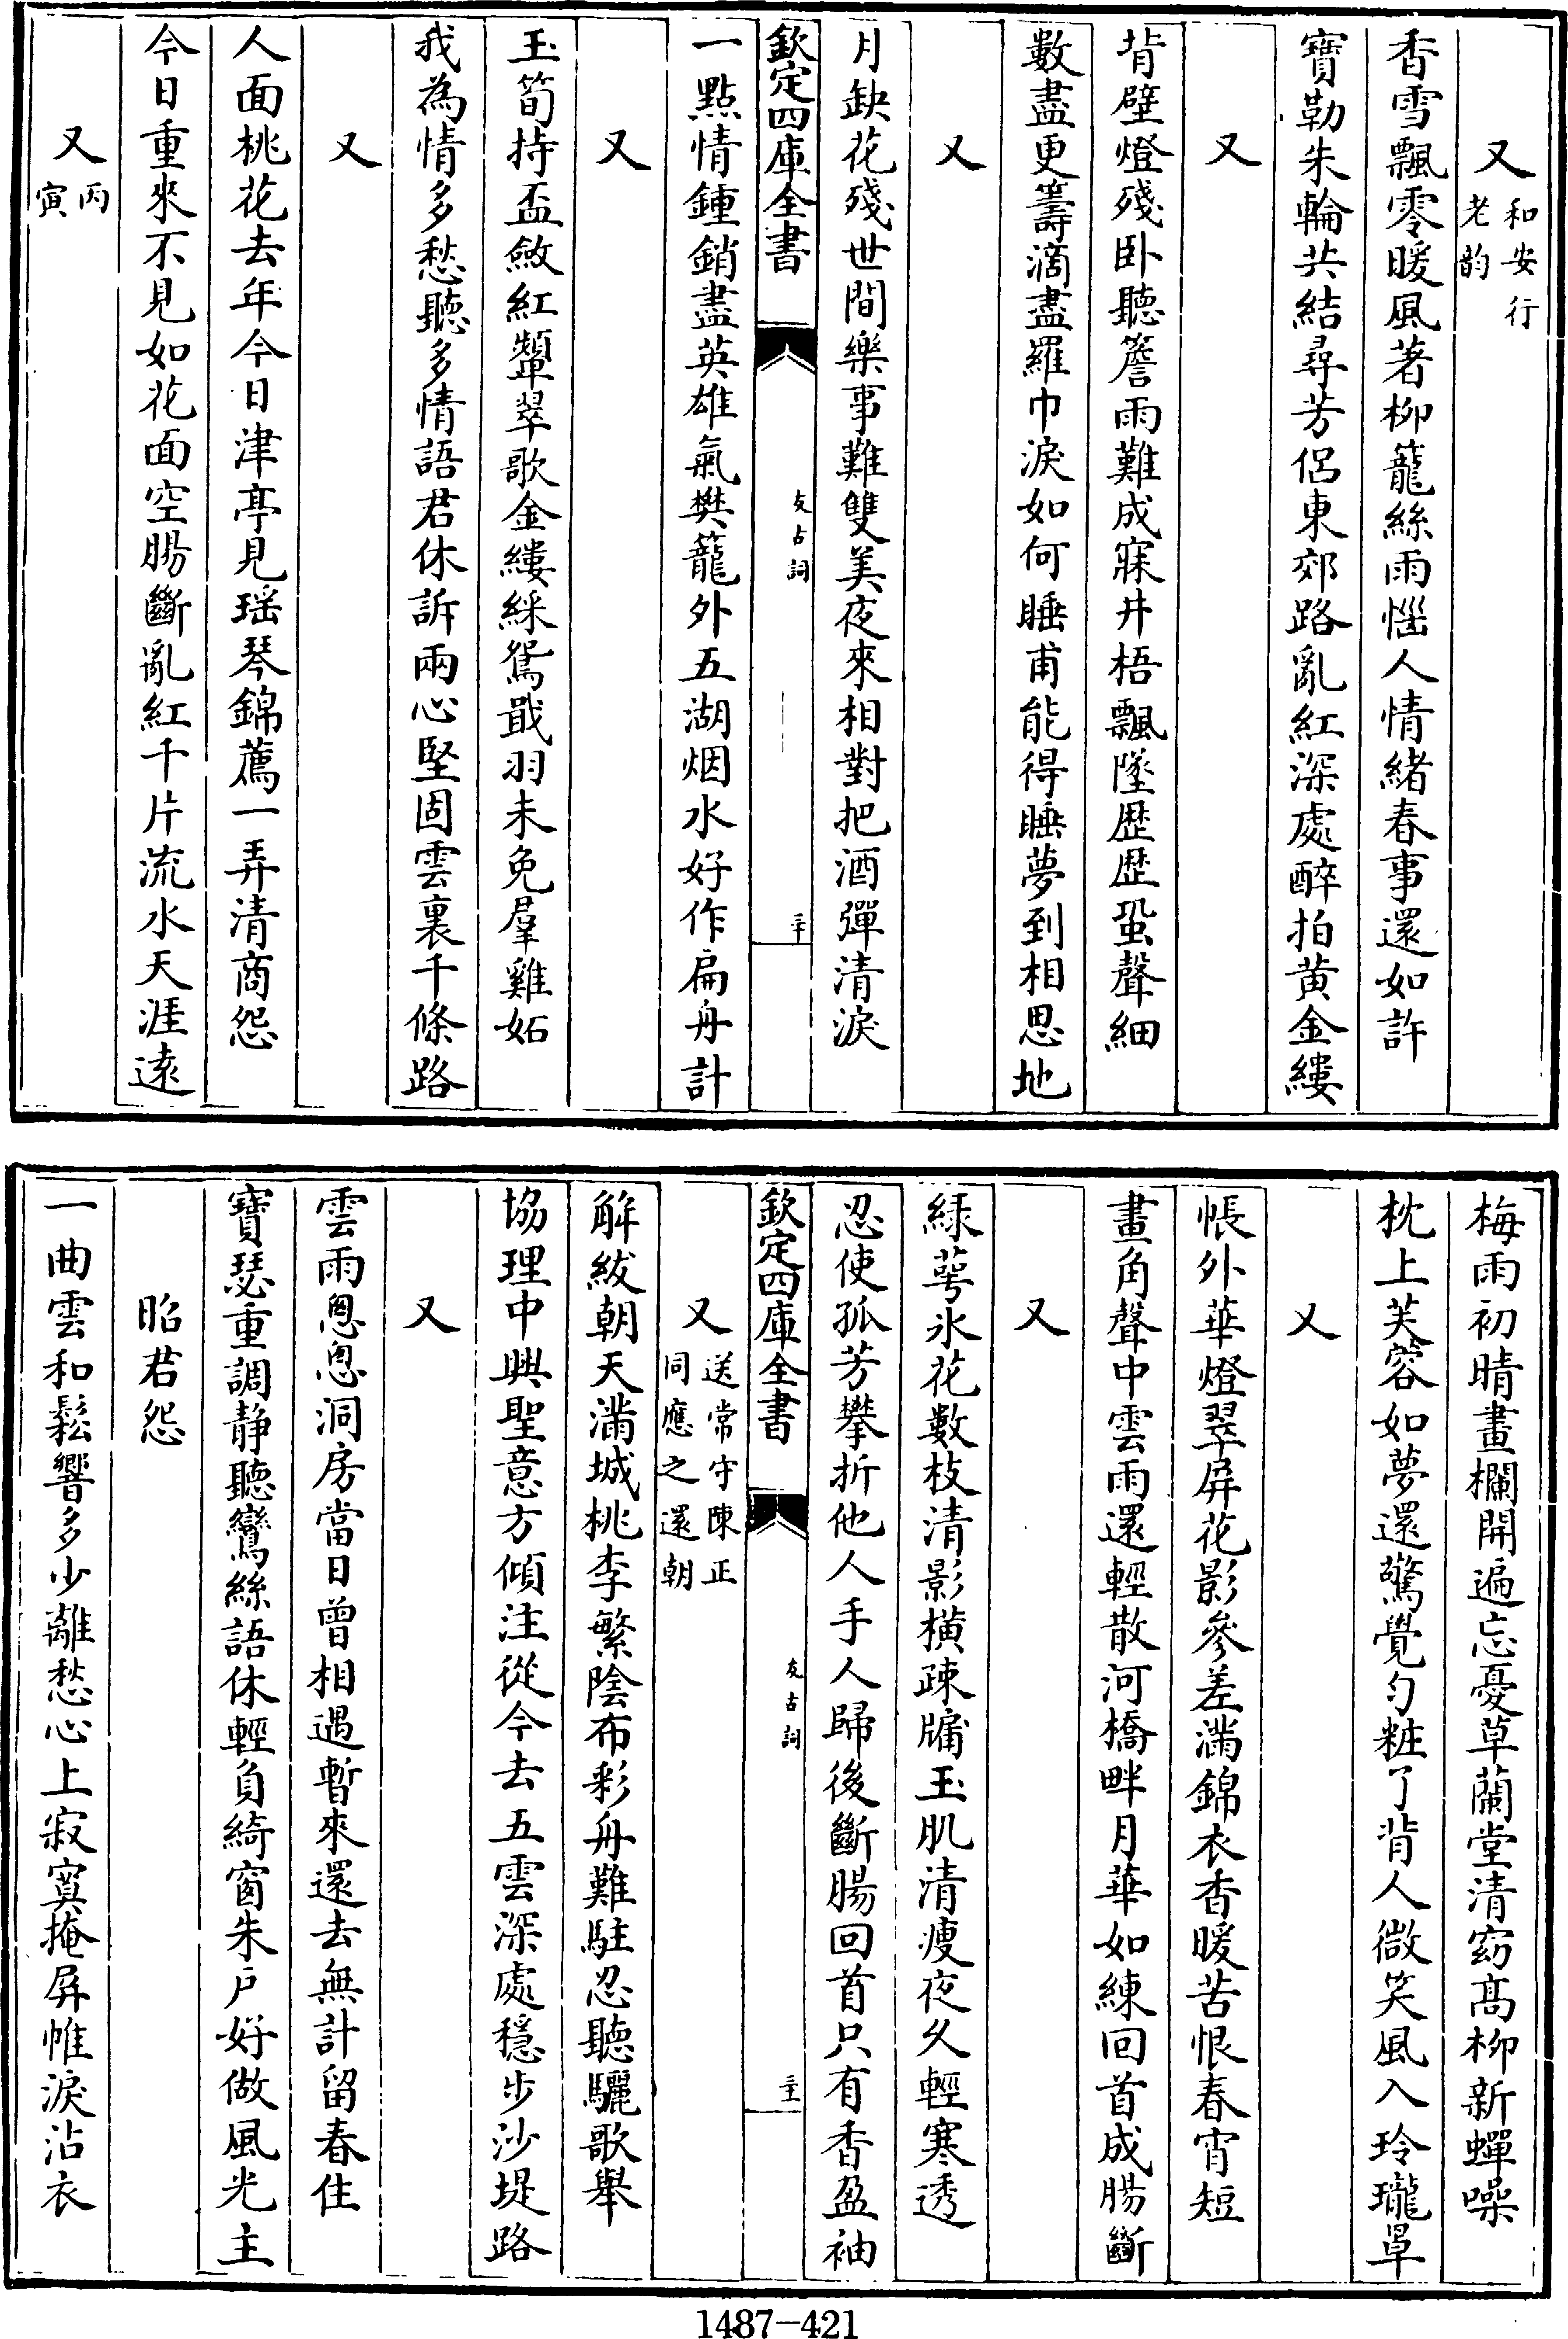 又和安行老韵
香雪飄零暖風著柳籠絲雨惱人情緒春事還如許
寶勒朱輪共結尋芳侣東郊路亂紅深處醉拍黄金縷
又
背壁燈殘卧聽簷雨難成寐井梧飄墜歴歴蛩聲細
數盡更籌滴盡羅巾淚如何睡甫能得睡夢到相思地
又
月缺花殘世間樂事難雙美夜來相對把酒彈清淚
欽定四庫全書
友古詞
三十
一點情鍾銷盡英雄氣樊籠外五湖烟水好作扁舟計
又
玉筍持盃斂紅顰翠歌金縷綵鴛戢羽未免羣雞妬
我為情多愁聽多情語君休訴兩心堅固雲裏千條路
又
人面桃花去年今日津亭見瑶琴錦薦一弄清商怨
今日重來不見如花面空腸斷亂紅千片流水天涯遠
又丙寅
梅雨初晴畫欄開遍忘憂草蘭堂清窈髙柳新蟬噪
枕上芙蓉如夢還驚覺匀粧了背人微笑風入玲瓏罩
又
帳外華燈翠屏花影參差滿錦衣香暖苦恨春宵短
畫角聲中雲雨還輕散河橋畔月華如練回首成腸斷
又
緑萼氷花數枝清影横疎牖玉肌清瘦夜久輕寒透
忍使孤芳攀折他人手人歸後斷腸回首只有香盈袖
欽定四庫全書
友古詞
三十一
又送常守陳正同應之還朝
解紱朝天滿城桃李繁陰布彩舟難駐忍聽驪歌舉
協理中興聖意方傾注從今去五雲深處穩步沙堤路
又
雲雨悤悤洞房當日曾相遇暫來還去無計留春住
寶瑟重調静聽鸞絲語休輕負綺窗朱户好做風光主
昭君怨
一曲雲和鬆響多少離愁心上寂寞掩屏帷淚沾衣
1487-421